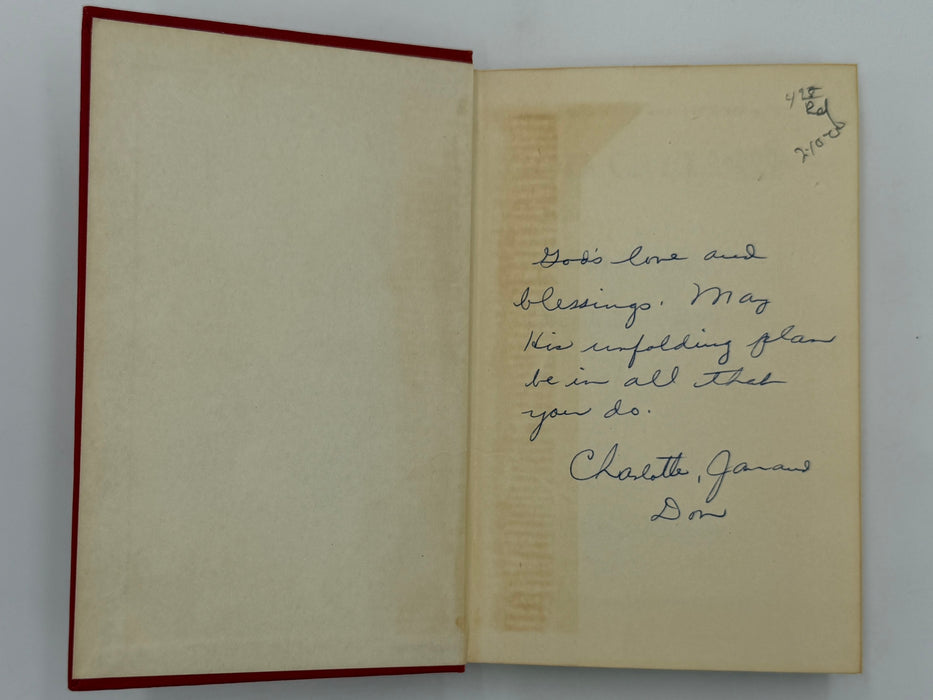 God's love and
blessings. May
His unfolding plan
be in all that
you do.
Charlotte, Jan and
Don